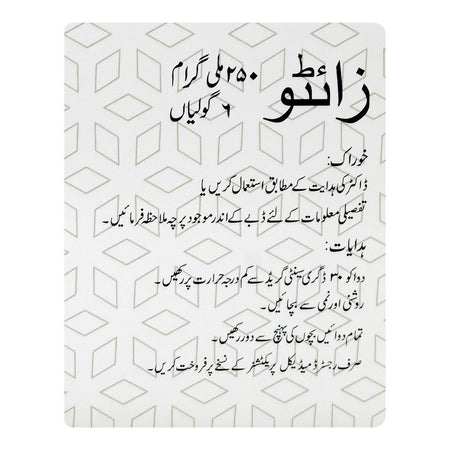 زائٹو
۲۵۰ ملی گرام
۶ گولیاں
خوراک:
ڈاکٹر کی ہدایت کے مطابق استعمال کریں یا
تفصیلی معلومات کے لئے ڈبے کے اندر موجود پرچہ ملاحظہ فرمائیں۔
ہدایات:
دوا کو ۳۰ ڈگری سینٹی گریڈ سے کم درجہ حرارت پر رکھیں۔
روشنی اور نمی سے بچائیں۔
تمام دوائیں بچوں کی پہنچ سے دور رکھیں۔
صرف رجسٹرڈ میڈیکل پریکٹشنر کے نسخے پر فروخت کریں۔